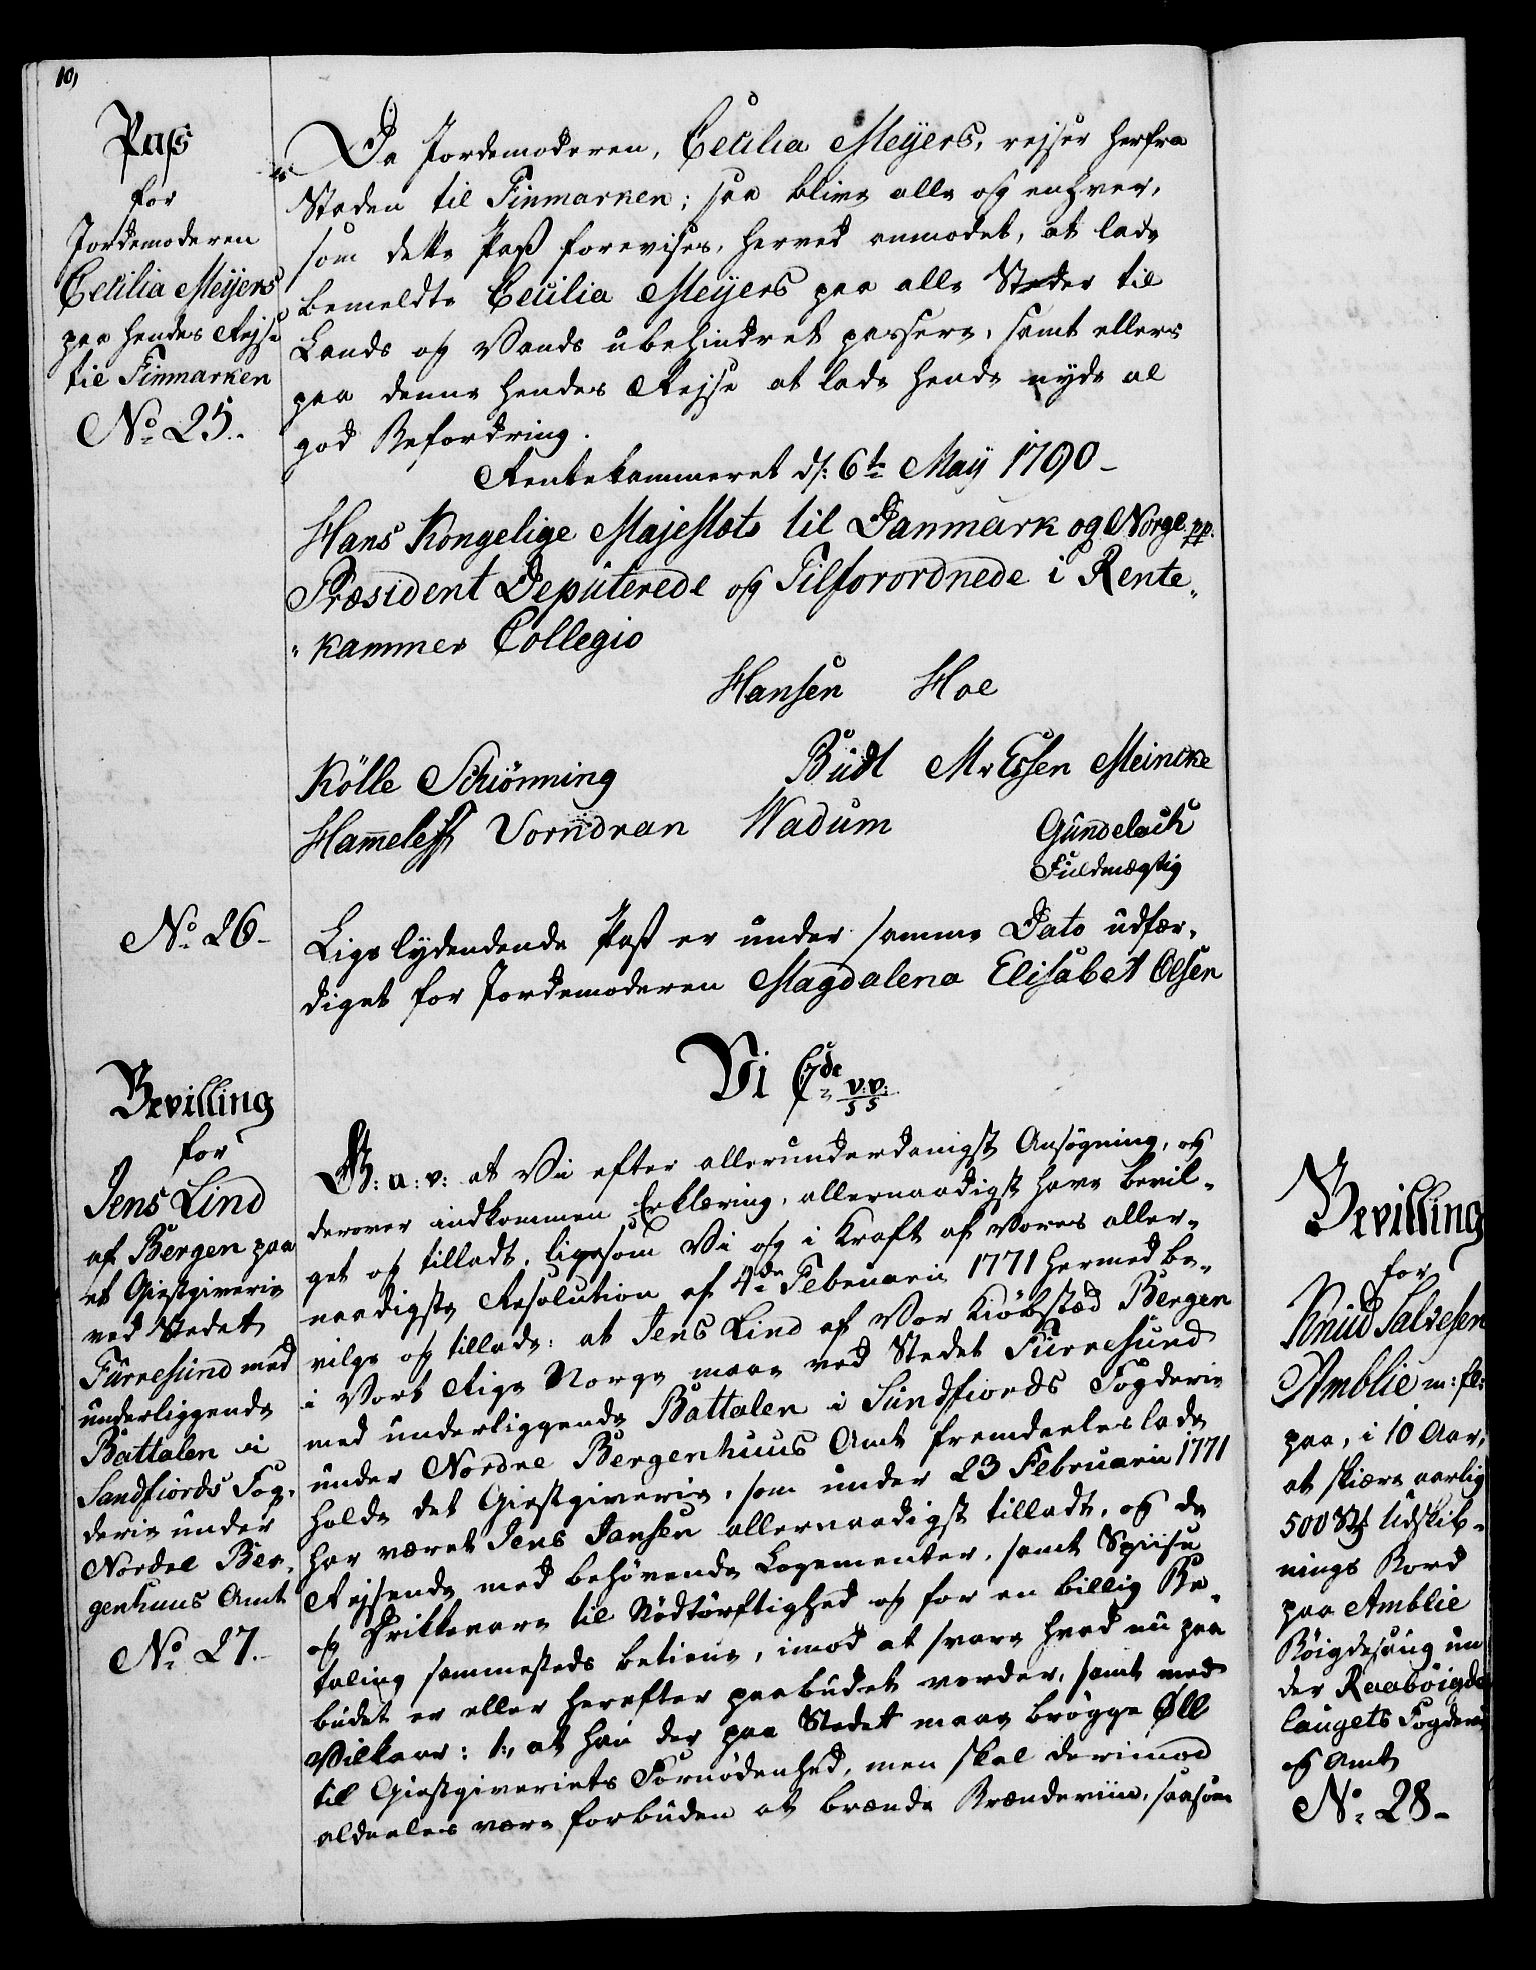 10,
Pass
for
Jordemoderen
Cecilia Meÿers
paa hendes Rejse
til Finmarken
No 25.
Da Jordemoderen, Cecilia Meÿers, rejser herfra
Staden til Finmarken; saa blive alle og enhver,
som dette Pass forevises, herved anmodet, at lade
bemeldte Cecilia Meÿers paa alle Steder til
Lands og Vands ubehindret passere, samt ellers
paa denne hendes Rejse at lade hende nyde al
god Befordring.
Rentekammeret d: 6te Maÿ 1790-
Hans Kongelige Majestæts til Danmark og Norge pp.
Præsident Deputerede og Tilforordnede i Rente
kammer Collegio
Hansen Hoe
Kölle Schiönning Büdt MvEssen Meincke
Hammeleff Vorndran Wadum Gündelach
Fuldmægtig
No 26-
Ligelydendende Pass er under samme Dato udfær-
diget for Jordemoderen Magdalena Elisabet Olsen
Bevilling
for
Jens Lind
af Bergen paa
et Giestgiverie
ved Stedet
Furresund med
underliggende
Battalen i
Sandfiords Fog-
derie under
Nordre Ber-
genhuus Amt
No 27.-
Vi C 7de v:v:
5 5
G: a: v: at Vi efter allerunderdanigst Ansøgning, og
derover indkommen Erklæring, allernaadigst have bevil-
get og tilladt, ligesom Vi og i Kraft af Vores aller-
naadigste Resolution af 4de Februarii 1771 hermed be-
vilge og tillade: at Jens Lind af Vor Kiöbstæd Bergen
i Vort Rige Norge maae ved Stedet Furresund
med underliggende Battalen i Sundfiords Fogderie
under Nordre Bergenhuus Amt fremdeeles lade
holde det Giestgiverie, som under 23 Februarii 1771
har været Jens Jansen allernaadigst tilladt, og de
Rejsende med behövende Logementer, samt Spiise
og Drikkevare til Nödtörftighed og for en billig Be-
taling sammesteds betiene, imod at svare hvad nu paa
budet er eller herefter paabudet vorder, samt med
Vilkaar: 1., at han der paa Stedet maae brögge Øll
til Giestgiveriets Fornödenhed, men skal derimod
aldeeles være forbuden at brænde Brændeviin, saasom
Bevilling
for
Knud Salvesen
Amblie m: fl:
paa, i 10 Aar,
at skiære aarlig
500 St Udskib-
nings Bord
paa Amblie
Böigdesaug un
der Raaböigde
laugets Fogderie
og Amt
No 28-